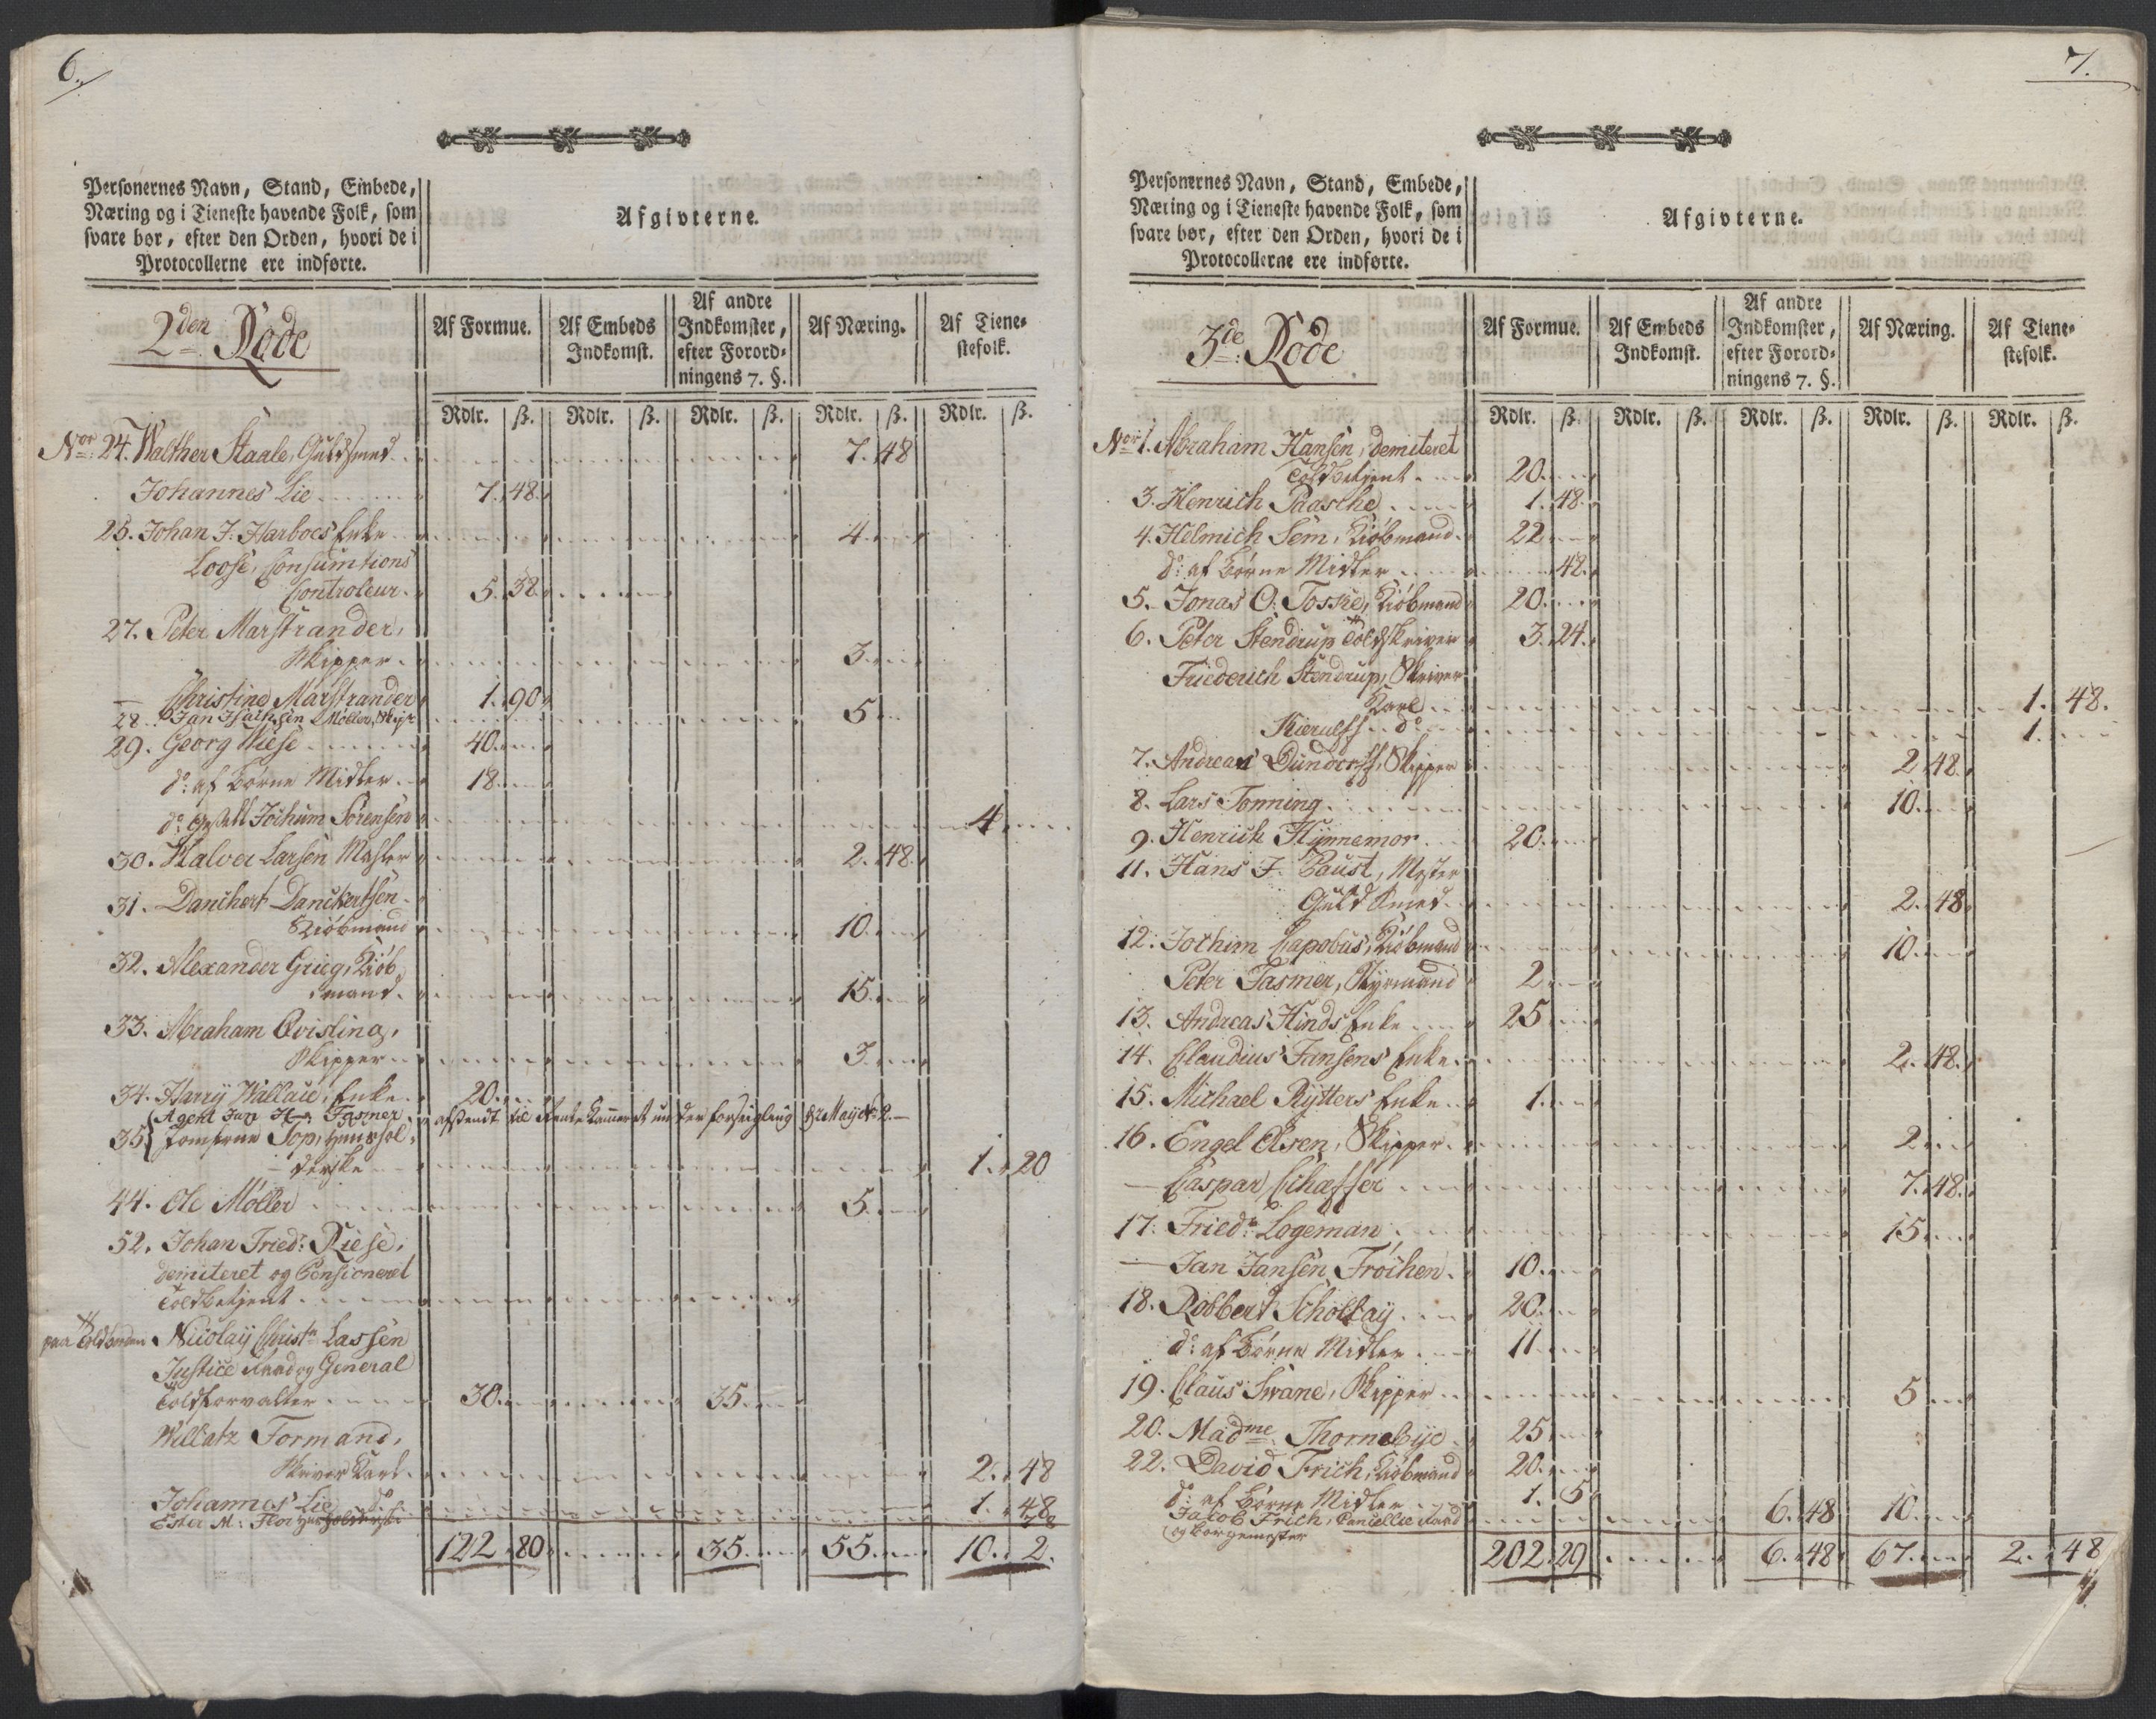 6.
Personernes Navn, Stand, Embede,
Næring og i Tieneste havende Folk, som
svare bør, efter den Orden, hvori de i
Protocollerne ere indførte.
Afgivterne.
2den Rode
Af Formue.
Af Embeds
Indkomst.
Af andre
Indkomster,
efter Forord-
ningens 7. §.
Af Næring.
Af Tiene-
stefolk.
Rdlr. ß. Rdlr. ß. Rdlr. ß. Rdlr. ß. Rdlr. ß.
No: 24. Walther Staale, Guldsmed 7. 48
Johannes Lie 7. 48.
25. Johan J. Harboes Enke 4
Loose, Consumtions
Controleur. 5. 38.
27. Peter Marstrander,
Skipper. 3.
— Christine Marstrander 1. 90
28. Jan Møller, Skipr 5
29. Georg Wiese 40.
do: af Børne Midler 18.
do: Jochum Sørensen 4.
30. Halvor Larsen Mahler 2. 48
31. Danchert Danckertsen
Kiöbmand 10.
32. Alexander Grieg, Kiöb
mand. 15.
33. Abraham Qvisling,
Skipper 3.
34. Harry Wallace, Enke. 20.
Agent Jan H Fasmer afsendt til Rentekammeret under forseigling
35 Jomfrue Top, Huushol
derske 1. 20
44. Ole Møller 5.
52. Johan Friedr: Riese,
demiteret og Pensioneret
Toldbetient
paa Toldboden Nicolay Christn Lassen
Justice Raad og General
Toldforvalter 30. 35.
Willatz Formand,
Skriver Karl. 2. 48
Johannes Lie do 1. 48
Ester M: Flor Huusholderske 48
122. 80 35. 55. 10. 2.
7.
Personernes Navn, Stand, Embede,
Næring og i Tieneste havende Folk, som
svare bør, efter den Orden, hvori de i
Protocollerne ere indførte.
Afgivterne.
3de: Rode
Af Formue.
Af Embeds
Indkomst.
Af andre
Indkomster,
efter Forord-
ningens 7. §.
Af Næring.
Af Tiene-
stefolk.
Rdlr. ß. Rdlr. ß. Rdlr. ß. Rdlr. ß. Rdlr. ß.
No: 1. Abraham Hansen, demiteret
Toldbetient 20.
3. Henrich Paasche 1. 48.
4. Helmich Sem, Kiöbmand. 22
do: af Børne Midler 48.
5. Jonas O: Toske, Kiöbmand 20.
6. Peter Stendrup Toldskriver 3. 24.
Friederich Stendrup, Skriver
Karl 1. 48.
Kierulff do 1.
7. Andreas Dündorff, Skipper 2. 48.
8. Lars Tønning 10.
9. Henrich Hynnemor 20.
11. Hans J. Paust, Mester
Guld Smed. 2. 48.
12. Jochim Capobus, Kiöbmand 10.
Peter Fasmer, Styrmand 2
13. Andreas Hinds Enke 25
14. Claudius Jansens Enke. 2. 48.
15. Michael Rytters Enke 1.
16. Engel Olsen, Skipper. 2
— Caspar Schæffer 7. 48.
17. Friedr: Logeman 15
— Jan Jansen Fröchen. 10.
18. Robbert Scholtay 20.
do: af Børne Midler 11
19. Claus Svane, Skipper 5
20. Madme Thornebye 25
22. David Frich, Kiöbmand 20.
do: af Børne Midler 1. 5
Jacob Frich, Cancellie Raad 6. 48 10.
og Borgemester
202. 29 6. 48 67. 2. 48